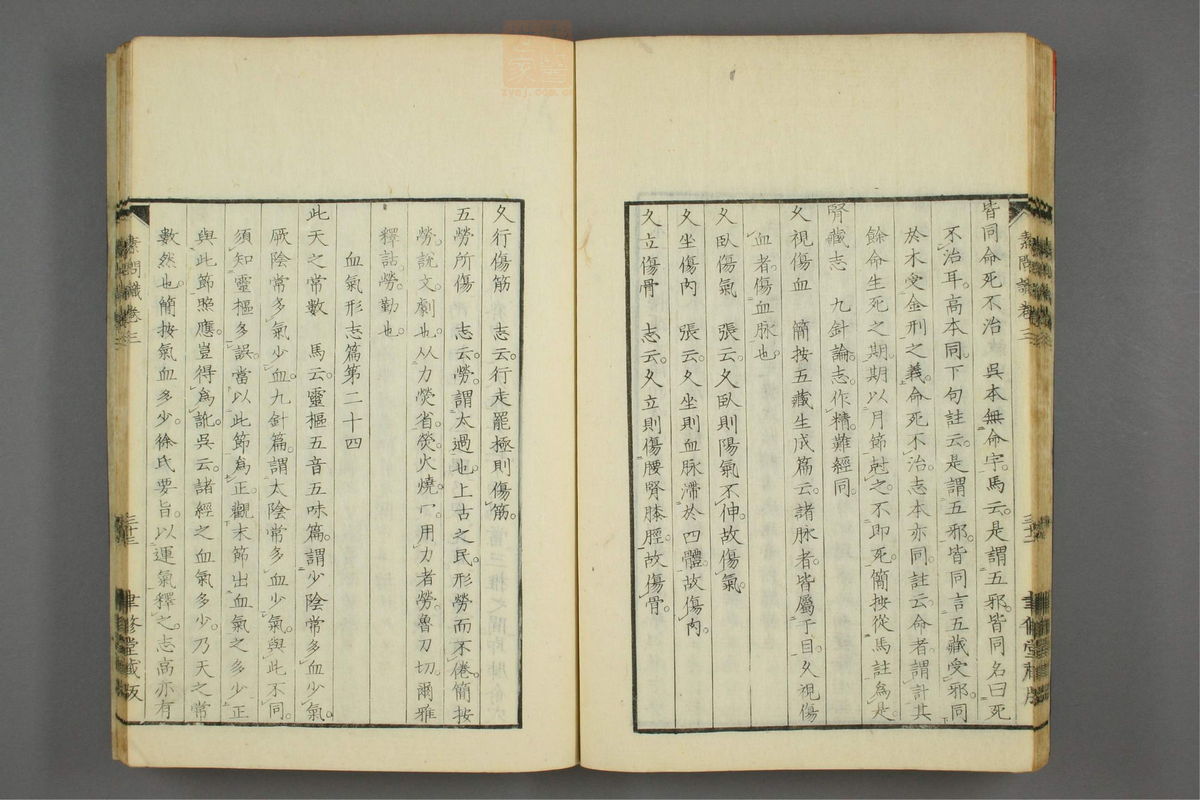 皆同命死不治　吳本無命字馬云是謂五邪皆同名曰死
不治耳高本同下句註云是謂五邪皆同言五藏受邪同
於木受金刑之義命死不治志本亦同註云命者謂計其
餘命生死之期期以月節尅之不即死簡按從馬註爲是
腎藏志　九針論志作精難經同
久視傷血　簡按五藏生成篇云諸脉者皆屬于目久視傷
血者傷血脉也
久臥傷氣　張云久臥則陽氣不伸故傷氣
久坐傷肉　張云久坐則血脉滯於四體故傷肉
久立傷骨　志云久立則傷腰腎膝脛故傷骨
久行傷筋　志云行走罷極則傷筋
五勞所傷　志云勞謂太過也上古之民形勞而不倦簡按
勞說文劇也从力熒省熒火燒冖用力者勞魯刀切爾雅
釋詁勞勤也
血氣形志篇第二十四
此天之常數　馬云靈樞五音五味篇謂少陰常多血少氣
厥陰常多氣少血九針篇謂太陰常多血少氣與此不同
須知靈樞多誤當以此節爲正觀末節出血氣之多少正
與此節照應豈得爲訛吳云諸經之血氣多少乃天之常
數然也簡按氣血多少徐氏要旨以運氣釋之志高亦有
素問識卷三
三十三
聿修堂藏版